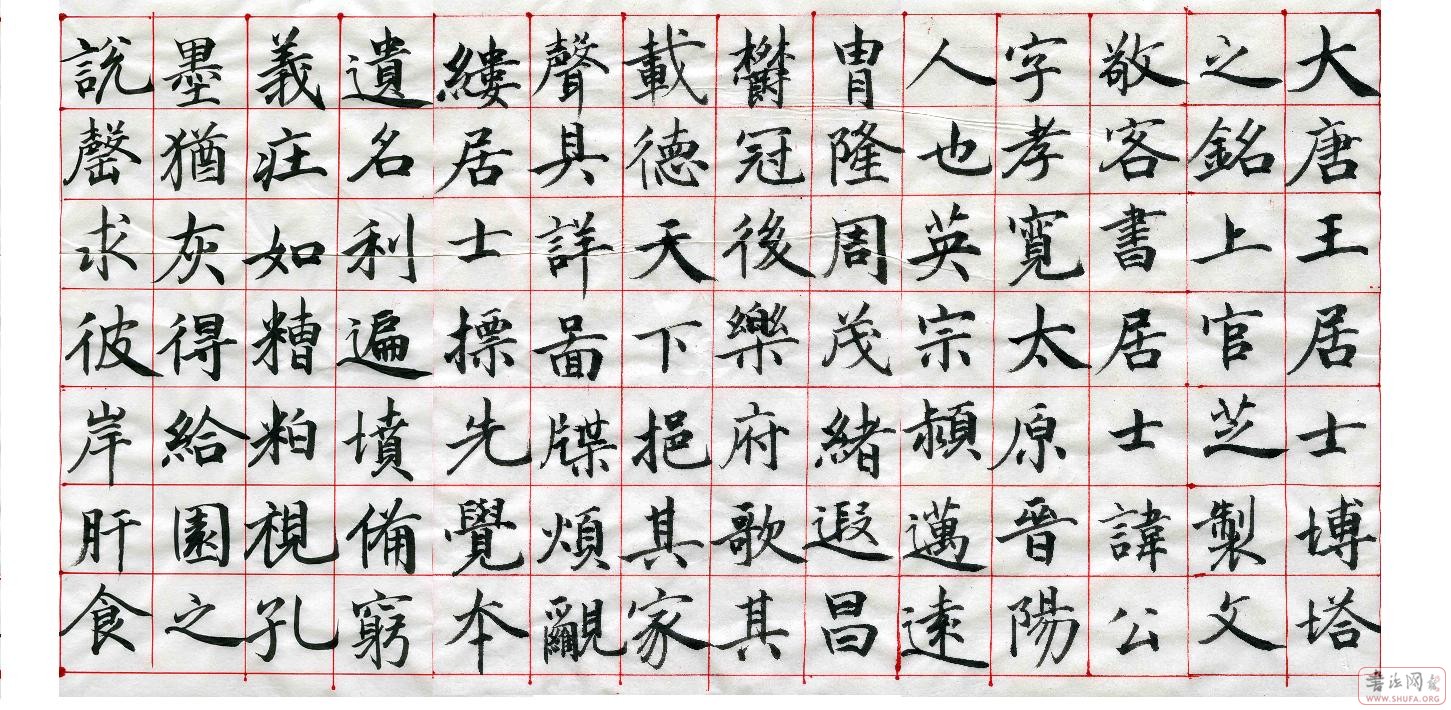 大唐王居士博塔
之銘上官芝製文
敬客書居士諱公
字孝寬太原晉陽
人也英宗穎邁遠
冑隆周茂緒遐昌
欝冠後樂府歌其
載德天下挹其家
聲具詳啚牒煩覼
縷居士標先覺本
遺名利遍墳備窮
義庄如糟粕視孔
墨猶灰得給園之
說罄求彼岸肝食
书法网
WWW.SHUFA.ORG